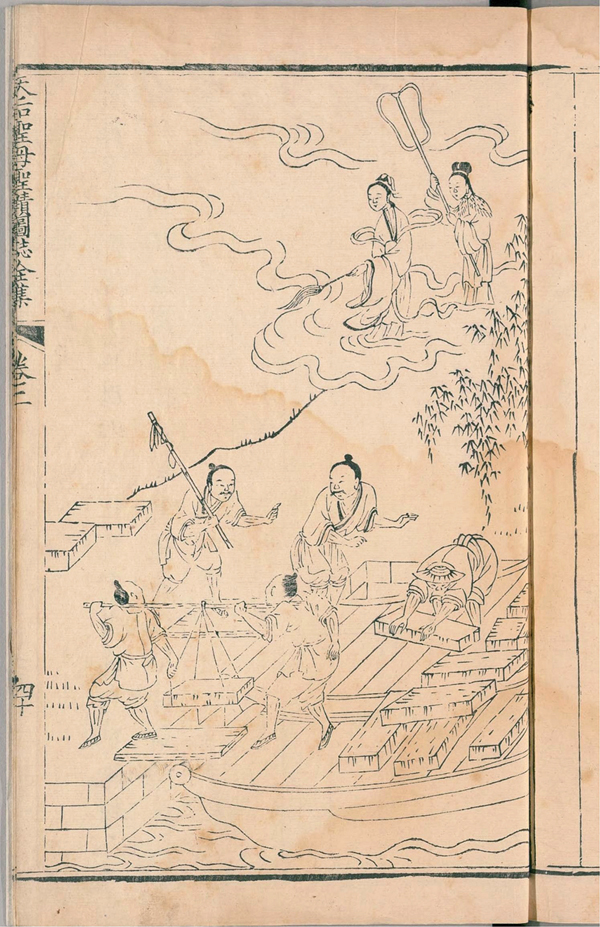 天后聖母聖蹟圖誌全集
卷二
四十